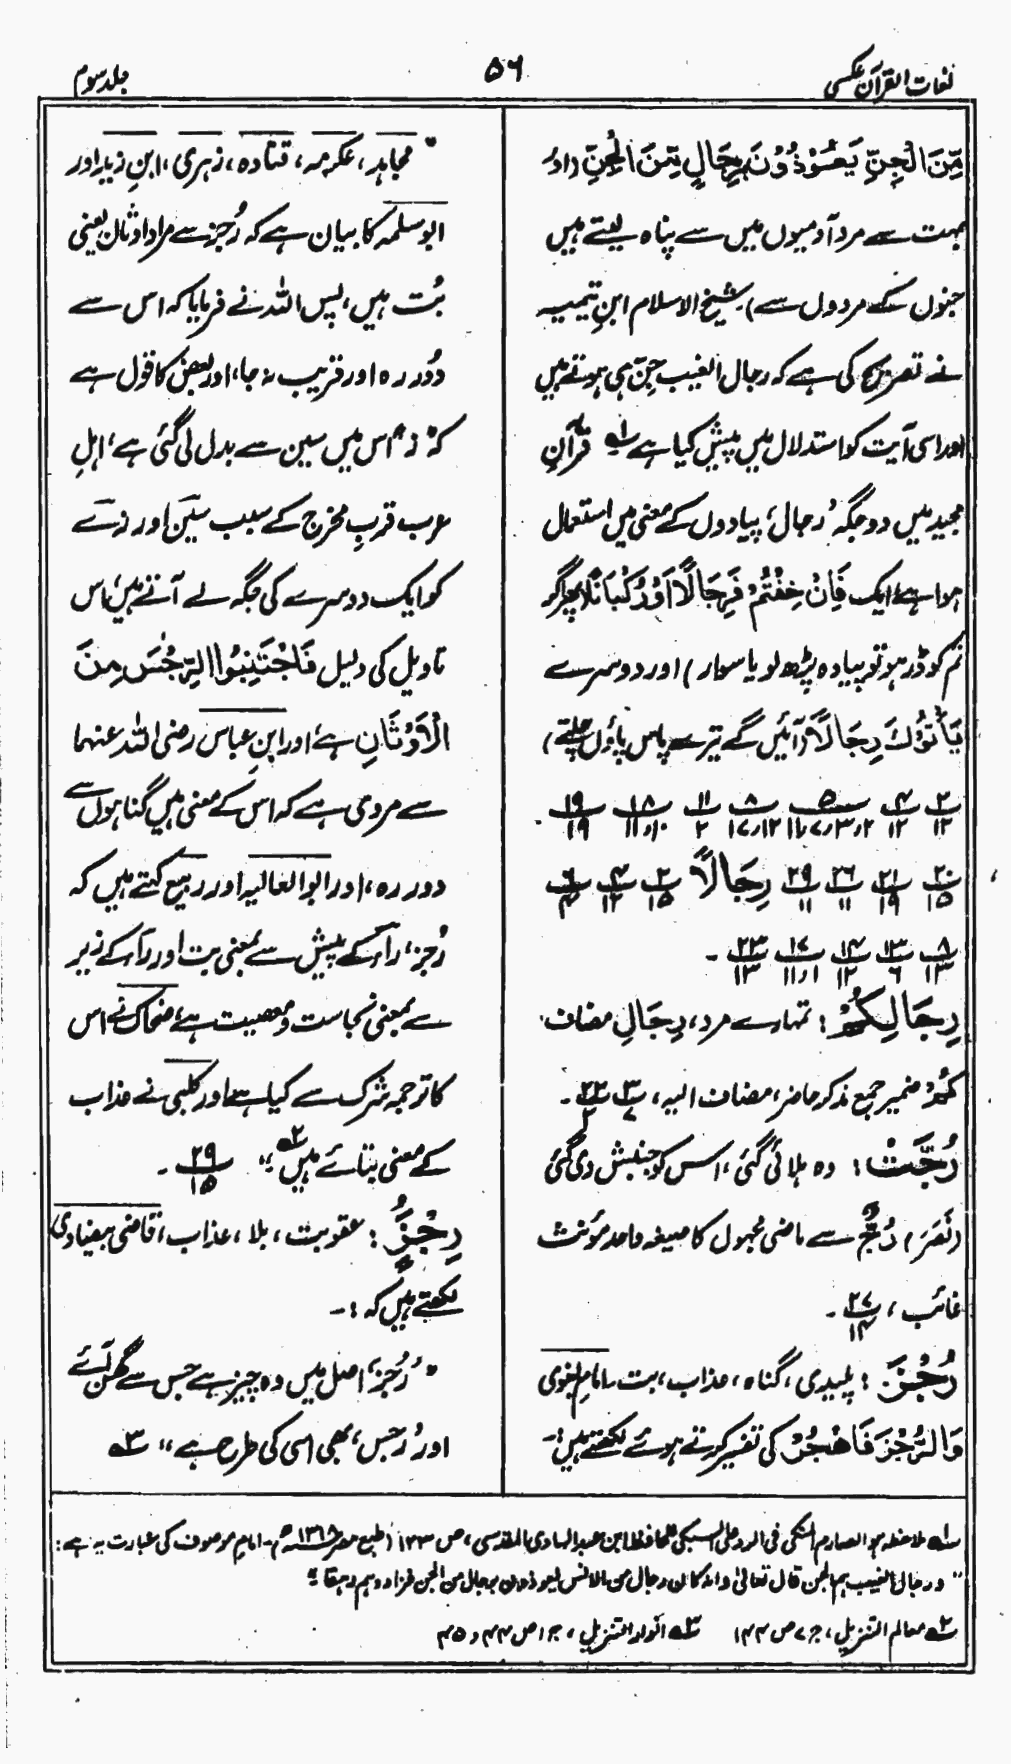 لغات القرآن عکسی
۵۶
جلد سوم
مِّنَ الْجِنِّ يَعُوْذُوْنَ بِرِجَالٍ مِّنَ الْجِنِّ (اور
بہت سے مرد آدمیوں میں سے پناہ لیتے ہیں
جنوں کے مردوں سے) شیخ الاسلام ابنِ تیمیہ
نے تصریح کی ہے کہ رجال الغیب جنّ ہی ہوتے ہیں
اور اسی آیت کو استدلال میں پیش کیا ہے لہ قرآنِ
مجید میں دو جگہ ’رجال‘ پیادوں کے معنی میں استعمال
ہوا ہے ایک فَاِنْ خِفْتُمْ فَرِجَالًا اَوْ رُكْبَانًا (پھر اگر
تم کو ڈر ہو تو پیادہ پڑھ لو یا سوار) اور دوسرے
يَأْتُوْكَ رِجَالًا (آئیں گے تیرے پاس پاؤں چلتے)
۲/۱۲ ۴/۱۲ ۱۱/۲ ۸/۱۲،۱۷ ۵/۲،۳،۷،۱۱ ۱۸/۱۰،۱۱ ۱۹/۱۹
۲۰/۱۵ ۲۱/۱۹ ۲۶/۱۱ ۲۹/۱۱ رِجَالًا ۲/۱۵ ۴/۱۲ ۶/۴
۸/۱۳ ۱۳/۶ ۱۴/۱۲ ۱۷/۱،۱۱ ۲۳/۱۳ -
رِجَالِكُمْ : تمہارے مرد، رِجَالِ مضاف
كُمْ ضمیر جمع مذکر حاضر، مضاف الیہ، ۳/۷ ۲۲/۲ -
رُجَّتْ : وہ ہلائی گئی، اس کو جنبش دی گئی
(نَصَرَ) رَجٌّ سے ماضی مجہول کا صیغہ واحد مؤنث
غائب، ۲۷/۱۴ -
رُجْزَ : پلیدی، گناہ، عذاب، بت۔ امام بغوی
وَالرُّجْزَ فَاهْجُرْ کی تفسیر کرتے ہوئے لکھتے ہیں:-
” مجاہد، عکرمہ، قتادہ، زہری، ابنِ زید اور
ابو سلمہ کا بیان ہے کہ رُجز سے مراد اوثان یعنی
بُت ہیں، پس اللہ نے فرمایا کہ اس سے
دُور رہ اور قریب نہ جا، اور بعض کا قول ہے
کہ ”ز“ اس میں سین سے بدل لی گئی ہے، اہلِ
عرب قربِ مخرج کے سبب سین اور زے
کو ایک دوسرے کی جگہ لے آتے ہیں، اس
تاویل کی دلیل فَاجْتَنِبُوا الرِّجْسَ مِنَ
الْاَوْثَانِ ہے، اور ابنِ عباس رضی اللہ عنہما
سے مروی ہے کہ اس کے معنی ہیں گناہوں سے
دور رہ، اور ابو العالیہ اور ربیع کہتے ہیں کہ
رُجز، راء کے پیش سے بمعنی بت اور راء کے زیر
سے بمعنی نجاست و معصیت ہے، ضحاک نے اس
کا ترجمہ شرک سے کیا ہے اور کلبی نے عذاب
کے معنی بتائے ہیں ۲ہ“ ۲۹/۱۵ -
رِجْزٌ : عقوبت، بلا، عذاب، قاضی بیضاوی
لکھتے ہیں کہ :-
” ’رُجز‘ اصل میں وہ چیز ہے جس سے گھن آئے
اور ’رجس‘ بھی اسی کی طرح ہے“ ۳ہ
۱ہ ملاحظہ ہو الصارم المنکی فی الرد علی السبکی للحافظ ابن عبد الہادی المقدسی، ص ۱۳۳ (طبع مصر ۱۳۱۸ھ) - امام موصوف کی عبارت یہ ہے:
” و رجال الغیب ہم الجن قال تعالیٰ و انہ کان رجال من الانس یعوذون برجال من الجن فزادوہم رہقا “
۲ہ معالم التنزیل، ج ۷ ص ۱۴۴ ۳ہ انوار التنزیل، ج ۱ ص ۴۴ و ۴۵